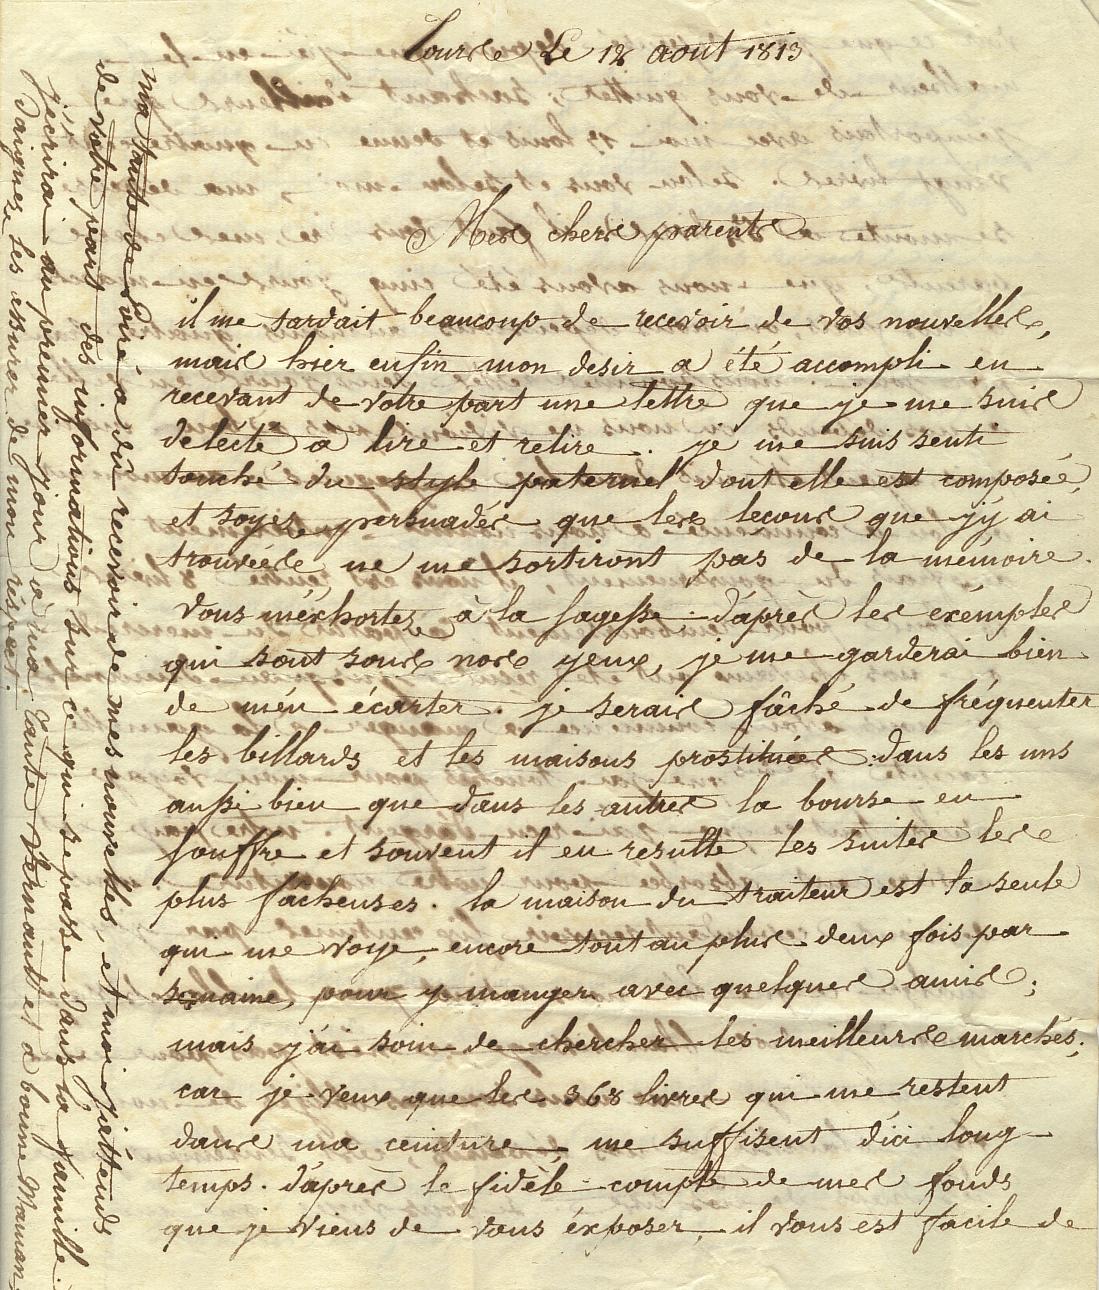 Tours Le 12 aout 1813
Mes chers parents
il me tardait beaucoup de recevoir de vos nouvelles,
mais hier enfin mon desir a été accompli en
recevant de votre part une lettre que je me suis
delécté a lire et relire. je me suis senti
touché du style paternel dont elle est composée,
et soyez persuadés que les lecons que j'y ai
trouvées ne me sortiront pas de la mémoire.
Vous m'éxhortez à la sagesse. d'après les exémples
qui sont sous nos yeux, je me garderai bien
de m'én écarter. je serais fâché de fréquenter
les billards et les maisons prostituées. dans les uns
aussi bien que dans les autres la bourse en
souffre et souvent il en resulte les suites les
plus facheuses. la maison du traiteur est la seule
qui me voye, encore tout au plus deux fois par
semaine, pour y manger avec quelques amis;
mais j'ai soin de chercher les meilleurs marchés;
car je veux que les 368 livres qui me restent
dans ma ceinture, me suffisent d'ici long
temps. d'après le fidèle compte de mes fonds
que je viens de vous éxposer, il vous est facile de
ma tante de Puiré a dû recevoir de mes nouvelles, et moi j'attends
de votre part des informations sur ce qui se passe dans la famille.
j'écrirai au premier jour à ma tante Vernault et a bonne Maman,
Daignez les assurer de mon réspect.